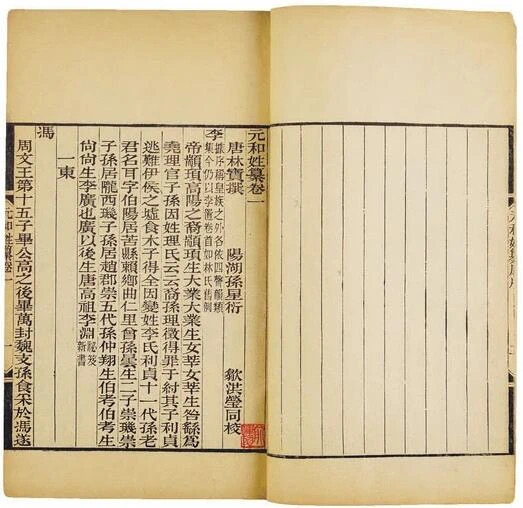 元和姓纂卷一
唐林寶撰 陽湖孫星衍 歙洪瑩同校
李 據序稱皇族之外各依四聲韻類
集今仍以李置卷首如林氏舊例
帝顓頊高陽之裔顓頊生大業大業生女莘女莘生咎繇爲
堯理官子孫因姓理氏云云裔孫理徵得罪于紂其子利貞
逃難伊侯之墟食木子得全因變姓李氏利貞十一代孫老
君名耳字伯陽居苦縣賴鄉曲仁里曾孫曇生二子崇璣崇
子孫居隴西璣子孫居趙郡崇五代孫仲翔生伯考伯考生
尚尚生李廣也廣以後生唐高祖李淵 秘笈
新書
一東
馮
周文王第十五子畢公高之後畢萬封魏支孫食采於馮遂
元和姓纂卷一 一